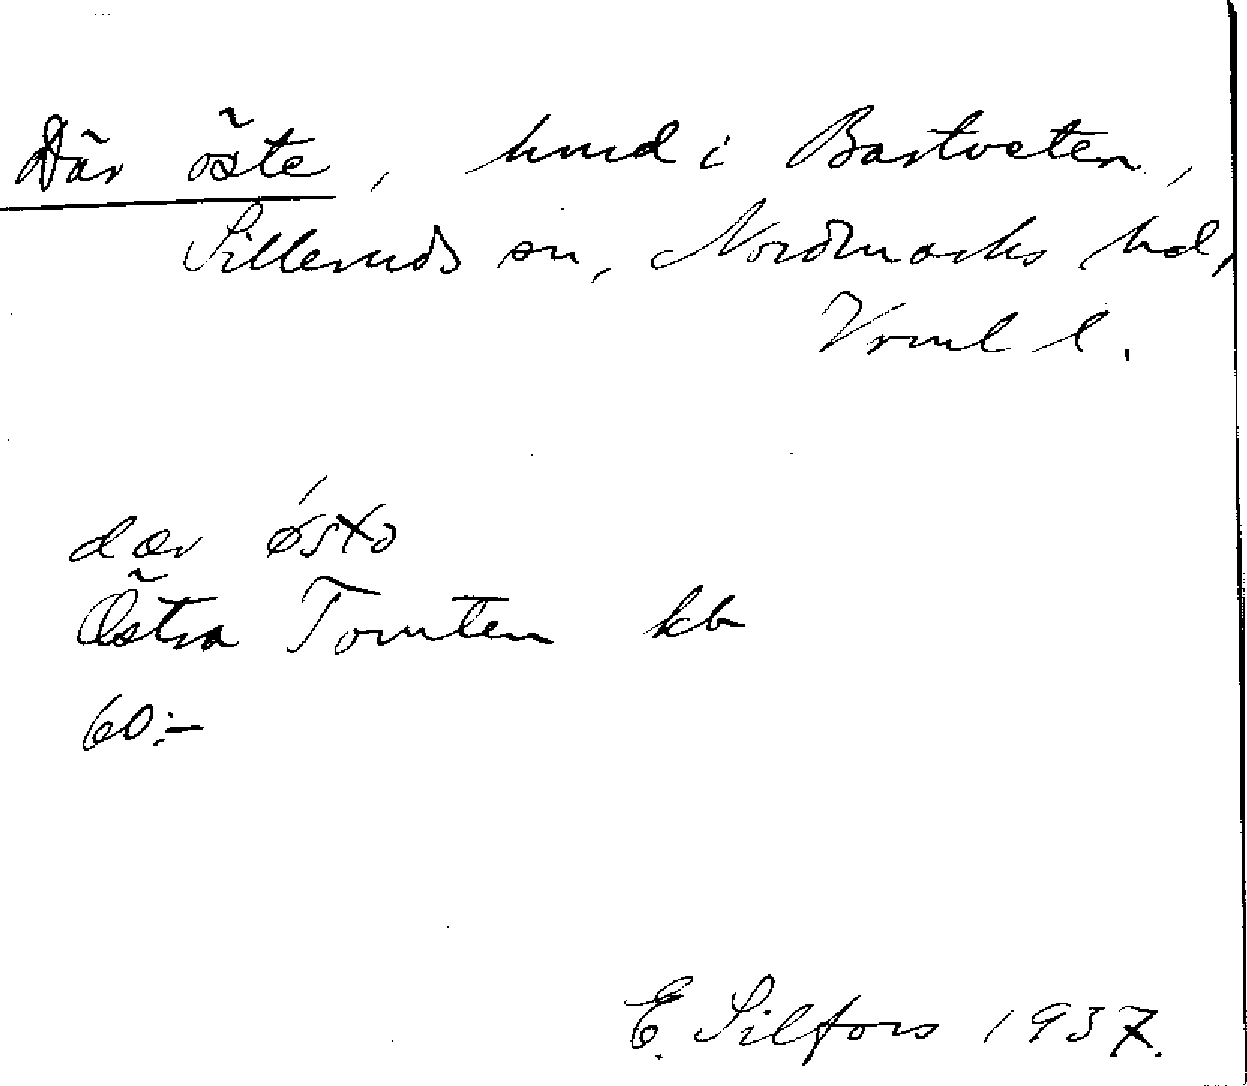 Där öste, hmd i Bortveten,
Silleruds sn, Nordmarks hd,
Vrml l.
dær østə
Östra Tomten kb
60:-
E. Silfors 1937.